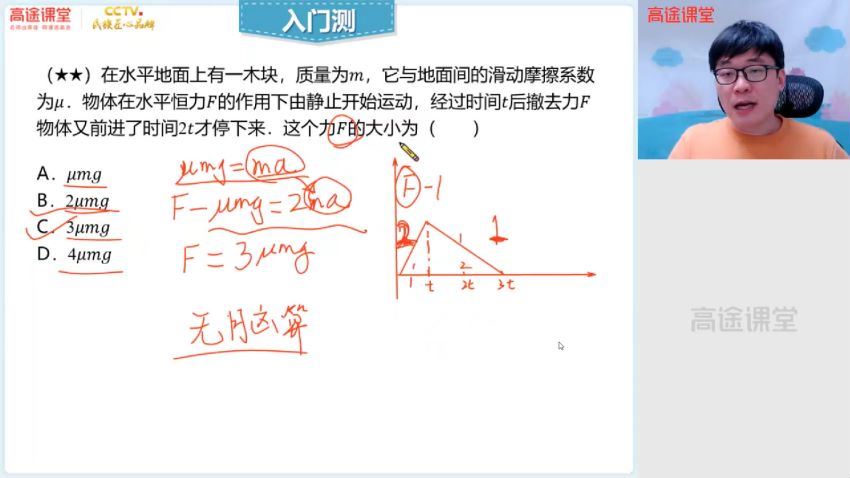 高途课堂
CCTV
民族匠心品牌
入门测
高途课堂
（★★）在水平地面上有一木块，质量为m，它与地面间的滑动摩擦系数
为μ．物体在水平恒力F的作用下由静止开始运动，经过时间t后撤去力F
物体又前进了时间2t才停下来．这个力F的大小为（　　）
A．μmg
B．2μmg
C．3μmg
D．4μmg
μmg=ma
F-μmg=2ma
F=3μmg
F-1
2
1
1
1
2
1
t
2t
3t
高途课堂